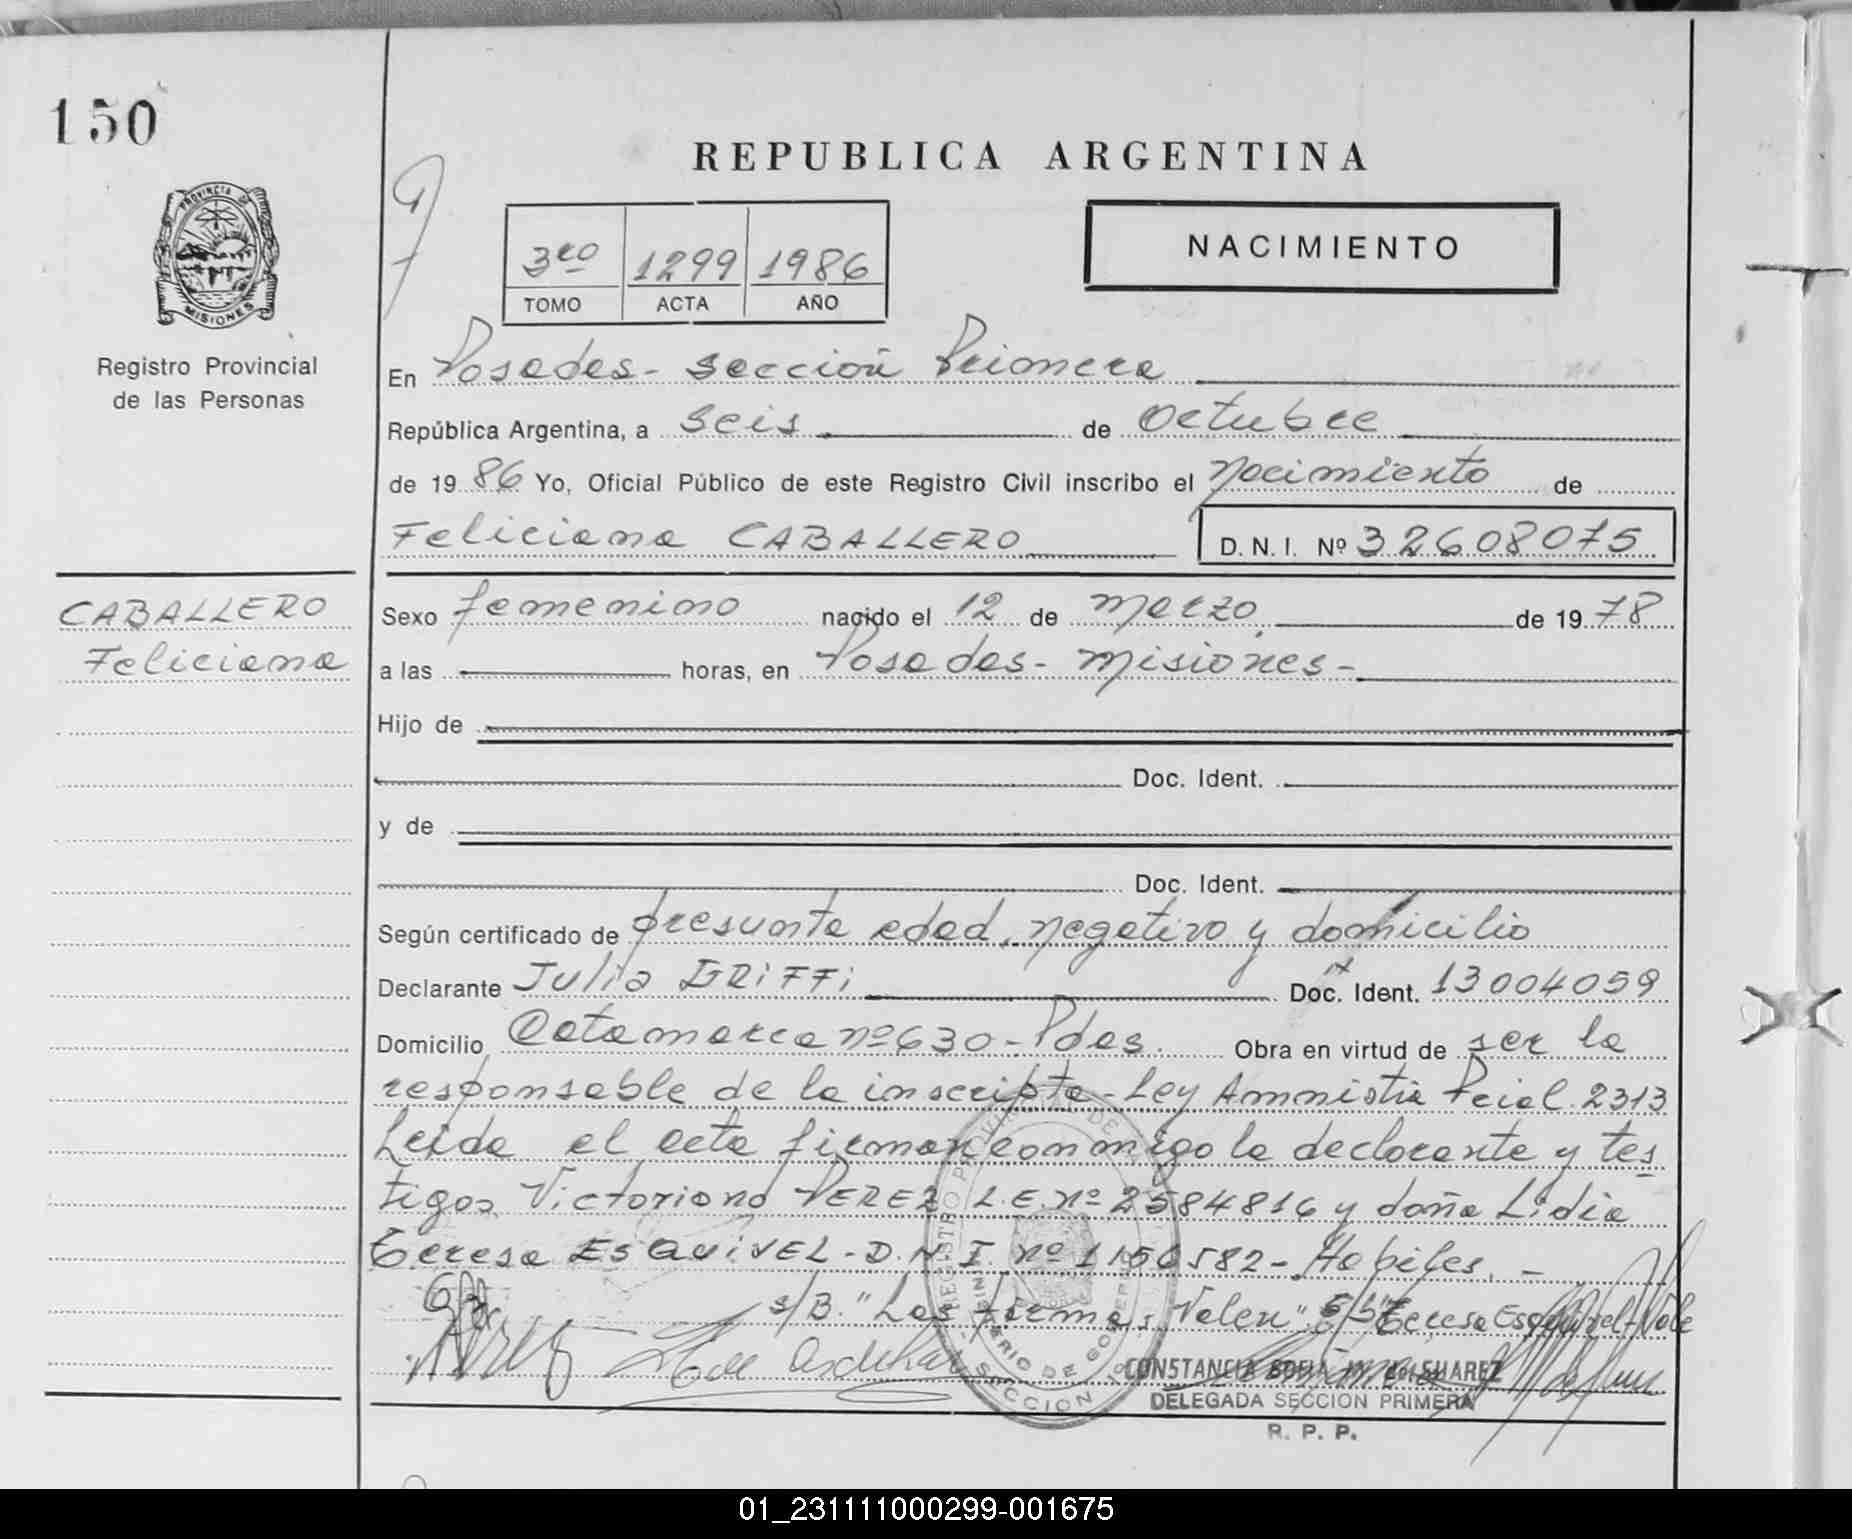 150
REPUBLICA ARGENTINA
PROVINCIA DE
MISIONES
Registro Provincial
de las Personas
3ro 1299 1986
TOMO ACTA AÑO
NACIMIENTO
En Posadas - Sección Primera
República Argentina, a Seis de Octubre
de 19 86 Yo, Oficial Público de este Registro Civil inscribo el Nacimiento de
Feliciana CABALLERO D. N. I. Nº 32608075
CABALLERO
Feliciana
Sexo femenino nacido el 12 de Marzo de 19 78
a las horas, en Posadas - Misiones -
Hijo de
Doc. Ident.
y de
Doc. Ident.
Según certificado de presunta edad, negativo y domicilio
Declarante Julia GRIFFI Doc. Ident. 13004059
Domicilio Catamarca nº 630 - Pdas. Obra en virtud de ser la
responsable de la inscripta - Ley Amnistia Pcial. 2313
Leida el acta firman conmigo la declarante y tes
tigos Victoriano PEREZ L.E. nº 2584816 y doña Lidia
Teresa ESQUIVEL - D.N.I. nº 1150582 - Habiles. -
s/B. "Las firmas Valen". E/L "Teresa Esquivel - Vale
REGISTRO PROVINCIAL DE
MINISTERIO DE GOBIERNO
SECCION 1º
CONSTANCIA SUAREZ
DELEGADA SECCION PRIMERA
R. P. P.
01_231111000299-001675